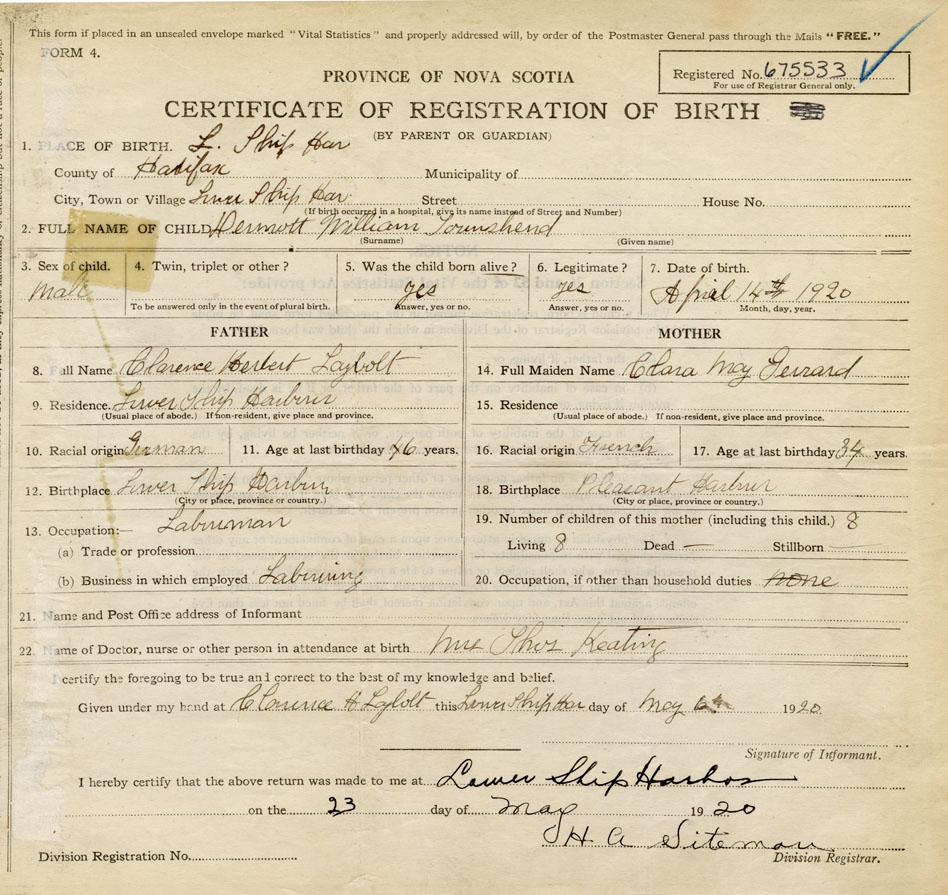 This form if placed in an unsealed envelope marked "Vital Statistics" and properly addressed will, by order of the Postmaster General pass through the Mails "FREE."
FORM 4.
Registered No. 675533
For use of Registrar General only.
PROVINCE OF NOVA SCOTIA
CERTIFICATE OF REGISTRATION OF BIRTH
(BY PARENT OR GUARDIAN)
1. PLACE OF BIRTH. L. Ship Har
County of Halifax Municipality of
City, Town or Village Lower Ship Har Street House No.
(If birth occurred in a hospital, give its name instead of Street and Number)
2. FULL NAME OF CHILD Dermott William Townshend
(Surname) (Given name)
3. Sex of child. 4. Twin, triplet or other? 5. Was the child born alive? 6. Legitimate? 7. Date of birth.
Male yes yes April 14th 1920
To be answered only in the event of plural birth. Answer, yes or no. Answer, yes or no. Month, day, year.
FATHER MOTHER
8. Full Name Clarence Herbert Laybolt 14. Full Maiden Name Clara May Gerrard
9. Residence. Lower Ship Harbour 15. Residence
(Usual place of abode.) If non-resident, give place and province. (Usual place of abode.) If non-resident, give place and province.
10. Racial origin German 11. Age at last birthday 46 years. 16. Racial origin French 17. Age at last birthday 34 years.
12. Birthplace Lower Ship Harbour 18. Birthplace Pleasant Harbour
(City or place, province or country.) (City or place, province or country.)
13. Occupation:— Labourman 19. Number of children of this mother (including this child.) 8
(a) Trade or profession Living 8 Dead — Stillborn —
(b) Business in which employed Labouring 20. Occupation, if other than household duties none
21. Name and Post Office address of Informant
22. Name of Doctor, nurse or other person in attendance at birth Mrs Thos Keating
I certify the foregoing to be true and correct to the best of my knowledge and belief.
Given under my hand at Clarence H Laybolt this Lower Ship Har day of May 1920
Signature of Informant.
I hereby certify that the above return was made to me at Lower Ship Harbor
on the 23 day of May 1920
H A Siteman
Division Registration No. Division Registrar.